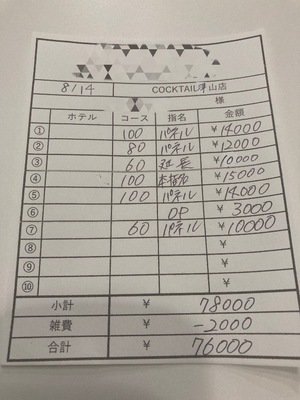 8/14 COCKTAIL津山店
様
ホテル コース 指名 金額
① 100 パネル ¥14000
② 80 パネル ¥12000
③ 60 延長 ¥10000
④ 100 本指名 ¥15000
⑤ 100 パネル ¥14000
⑥ OP ¥3000
⑦ 60 パネル ¥10000
⑧ ¥
⑨ ¥
⑩ ¥
小計 ¥ 78000
雑費 ¥ -2000
合計 ¥ 76000